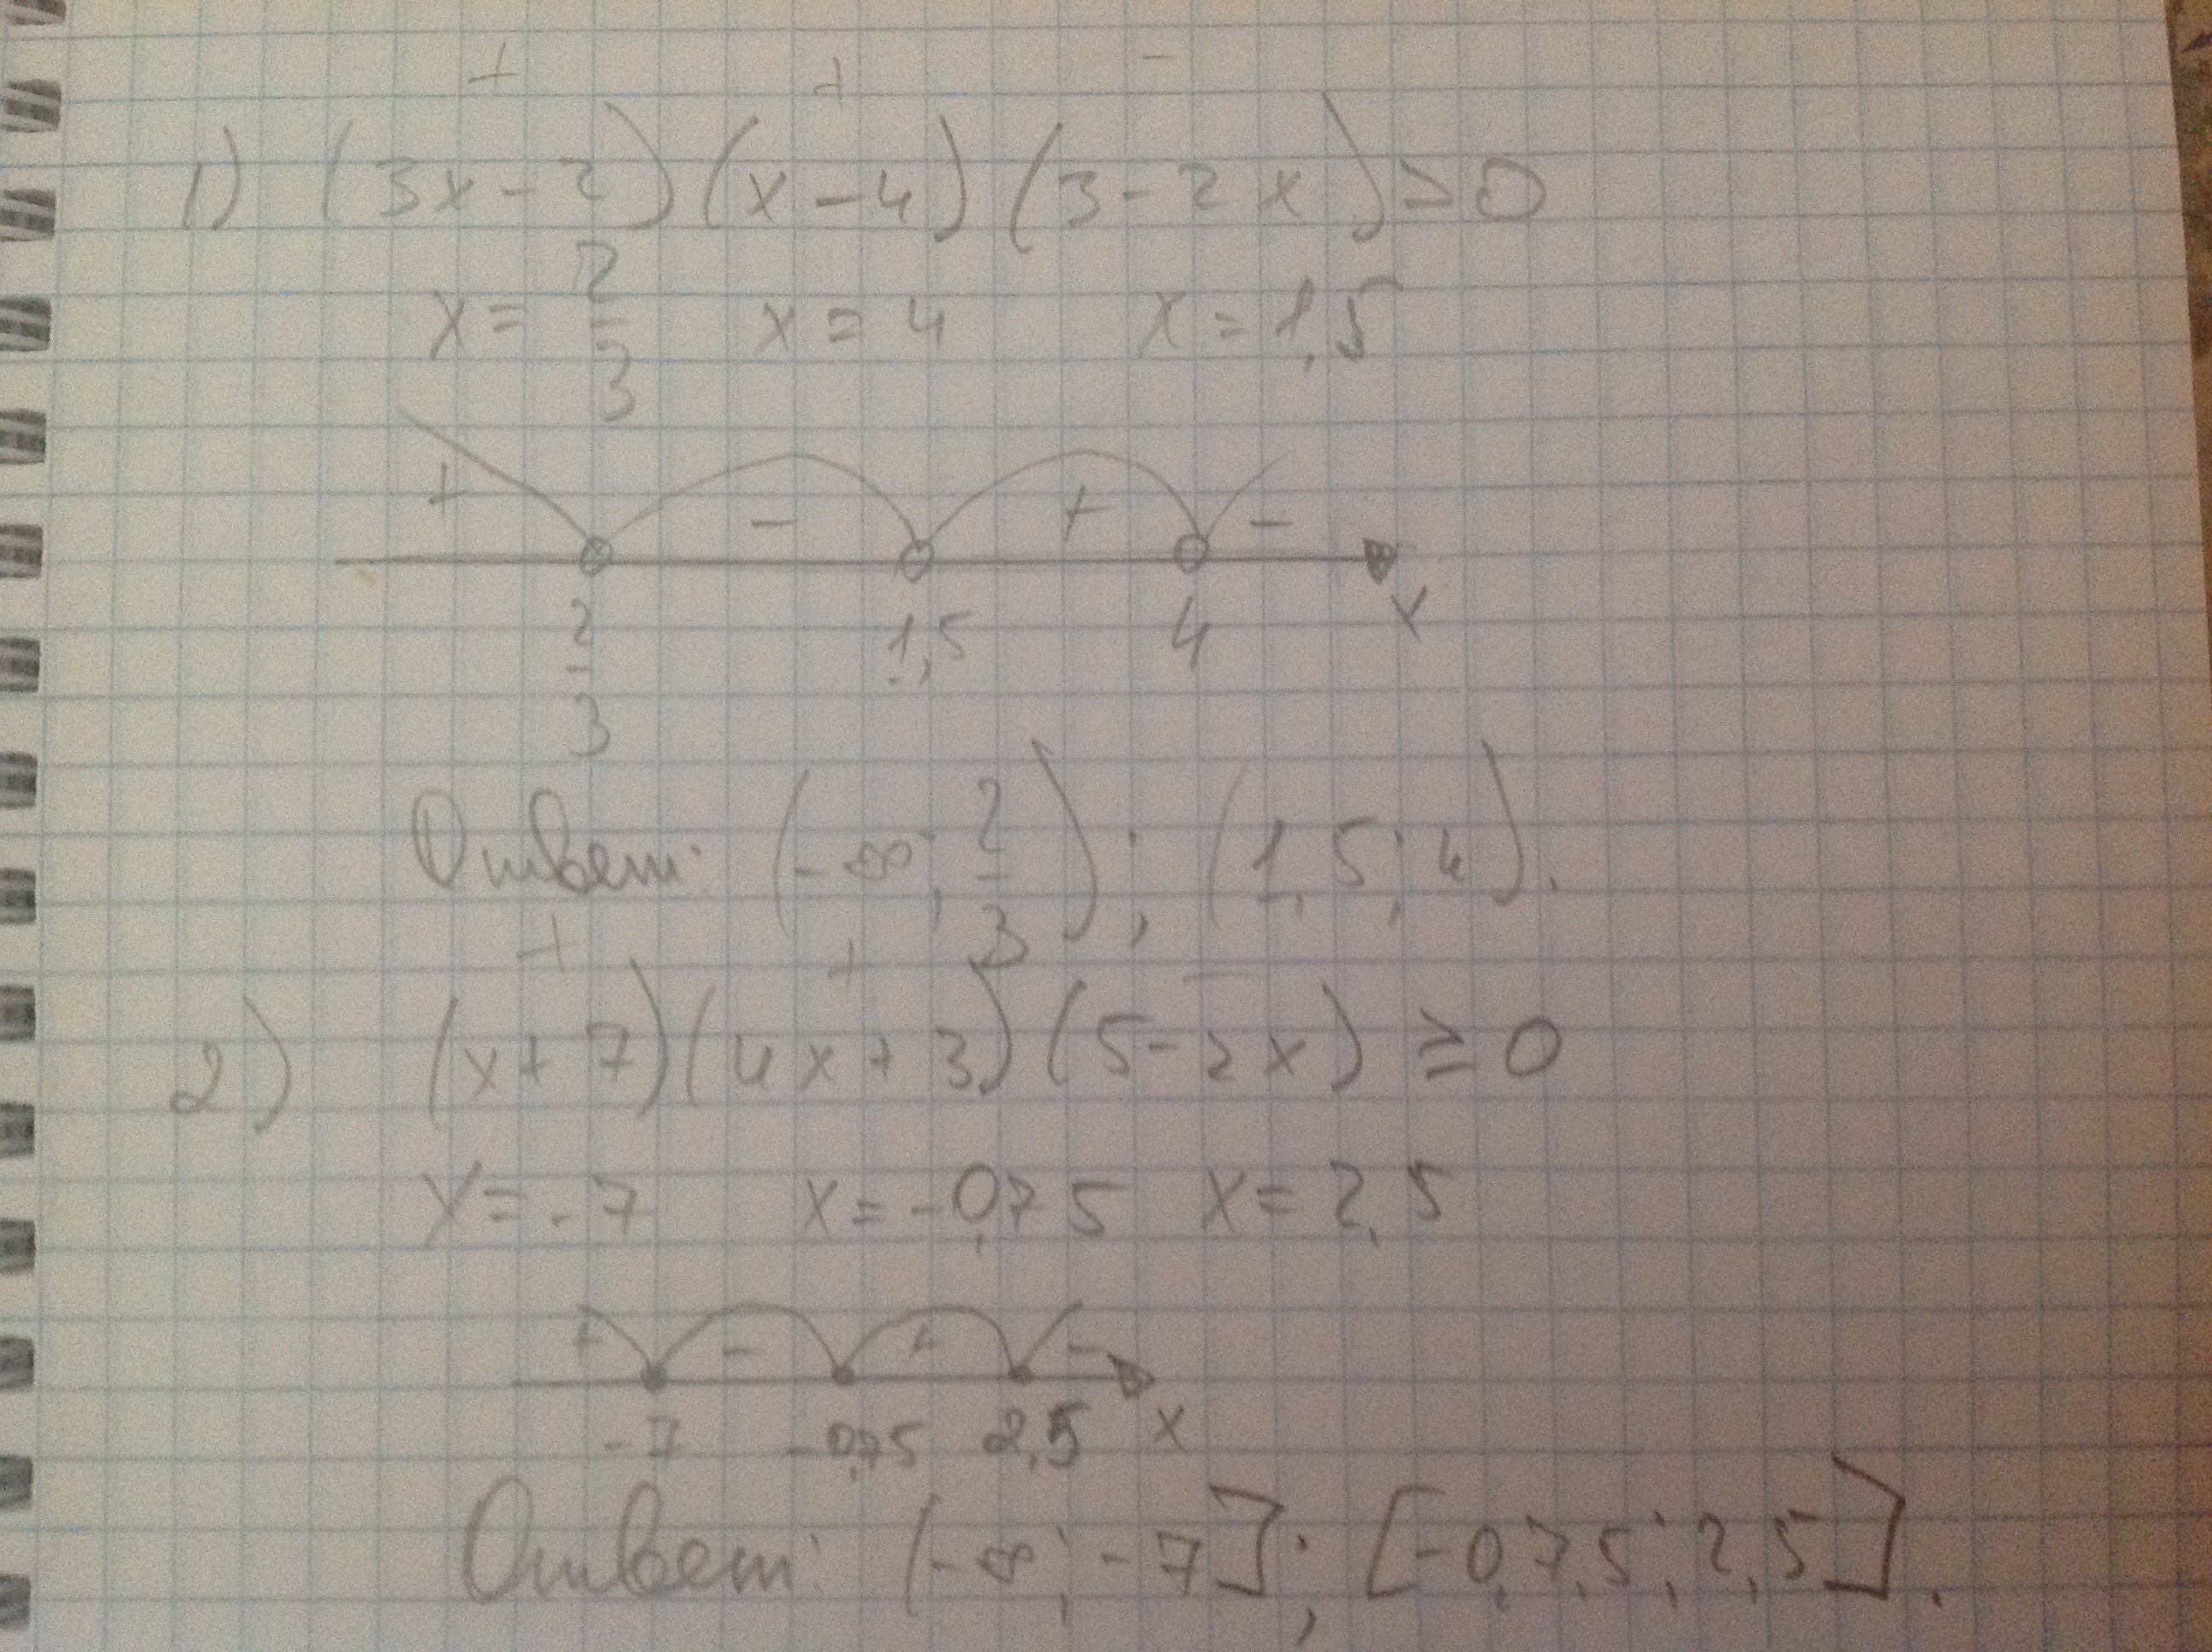 + + -
1) (3x-2)(x-4)(3-2x)>0
x=2/3 x=4 x=1,5
+ - + -
2/3 1,5 4 x
Ответ: (-∞; 2/3); (1,5; 4).
+ + -
2) (x+7)(4x+3)(5-2x)≥0
x=-7 x=-0,75 x=2,5
+ - + -
-7 -0,75 2,5 x
Ответ: (-∞; -7]; [-0,75; 2,5].